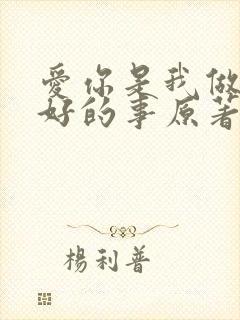 愛你是我做
好的事原著
楊利普